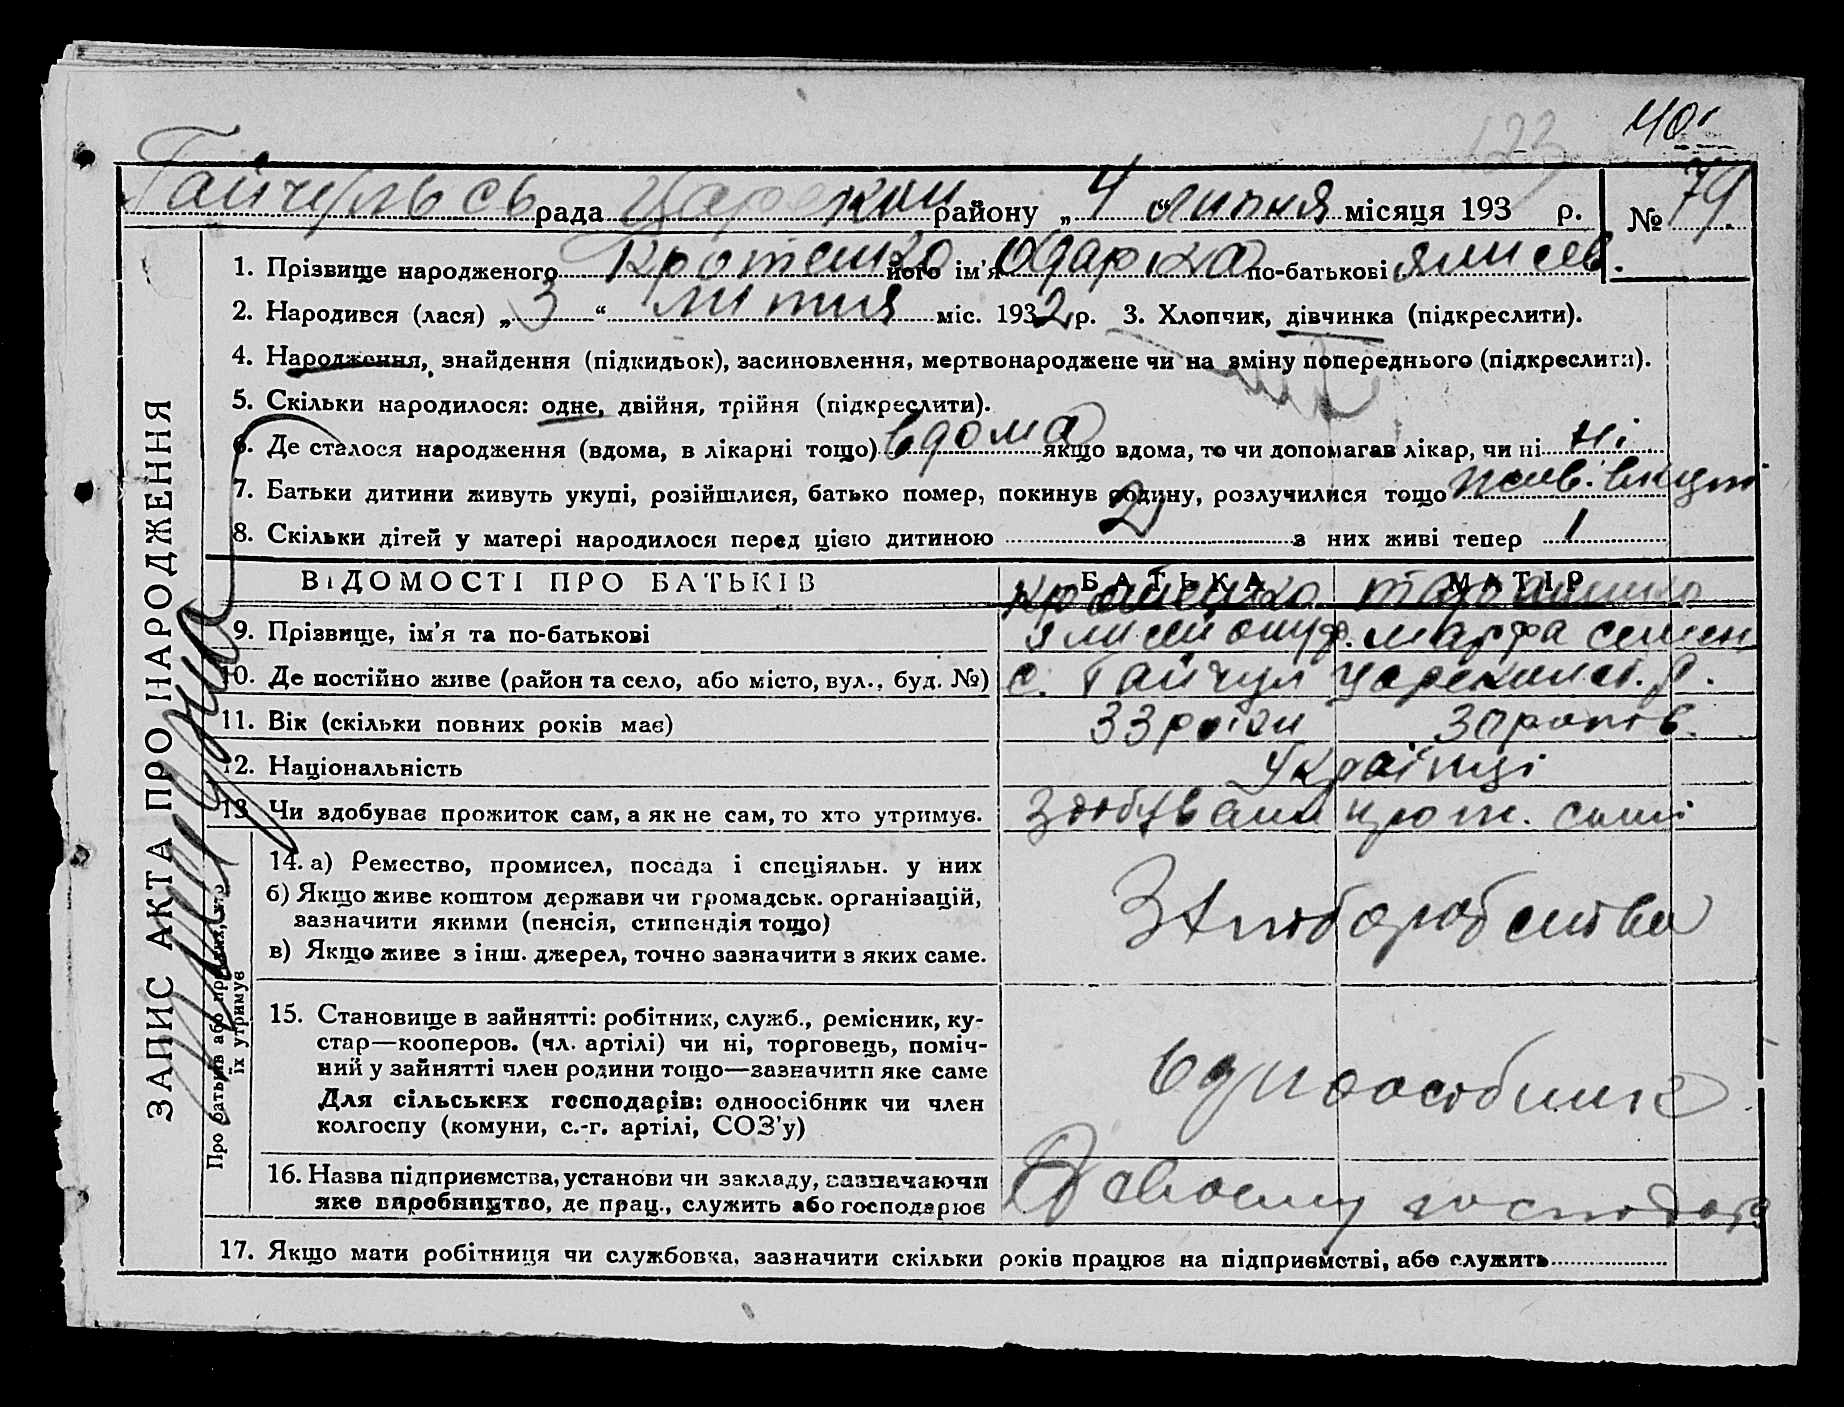 123 40
Гайчульсь рада Царекон району „ 4 “ липня місяця 193 р. № 79
1. Прізвище народженого Кротенко його ім'я Одарка по-батькові
2. Народився (лася) „ 3 “ липня міс. 1932 р. 3. Хлопчик, дівчинка (підкреслити).
4. Народження, знайдення (підкидьок), засиновлення, мертвонароджене чи на зміну попереднього (підкреслити).
5. Скільки народилося: одне, двійня, трійня (підкреслити).
6. Де сталося народження (вдома, в лікарні тощо) вдома якщо вдома, то чи допомагав лікар, чи ні ні
7. Батьки дитини живуть укупі, розійшлися, батько помер, покинув родину, розлучилися тощо
8. Скільки дітей у матері народилося перед цією дитиною 2 з них живі тепер 1
ЗАПИС АКТА ПРО НАРОДЖЕННЯ
ВІДОМОСТІ ПРО БАТЬКІВ БАТЬКА МАТІР
9. Прізвище, ім'я та по-батькові Марфа Семен
10. Де постійно живе (район та село, або місто, вул., буд. №) с. Гайчул
11. Вік (скільки повних років має) 33 роки 30 років
12. Національність Українці
13. Чи здобуває прожиток сам, а як не сам, то хто утримує.
Про батьків або про них, хто
їх утримує
14. а) Ремество, промисел, посада і спеціяльн. у них
б) Якщо живе коштом держави чи громадськ. організацій,
зазначити якими (пенсія, стипендія тощо)
в) Якщо живе з інш. джерел, точно зазначити з яких саме.
15. Становище в зайнятті: робітник, служб., ремісник, ку-
стар—кооперов. (чл. артілі) чи ні, торговець, поміч-
ний у зайнятті член родини тощо—зазначити яке саме
Для сільських господарів: одноосібник чи член
колгоспу (комуни, с.-г. артілі, СОЗ'у)
16. Назва підприємства, установи чи закладу, зазначаючи
яке виробництво, де прац., служить або господарює
17. Якщо мати робітниця чи службовка, зазначити скільки років працює на підприємстві, або служить